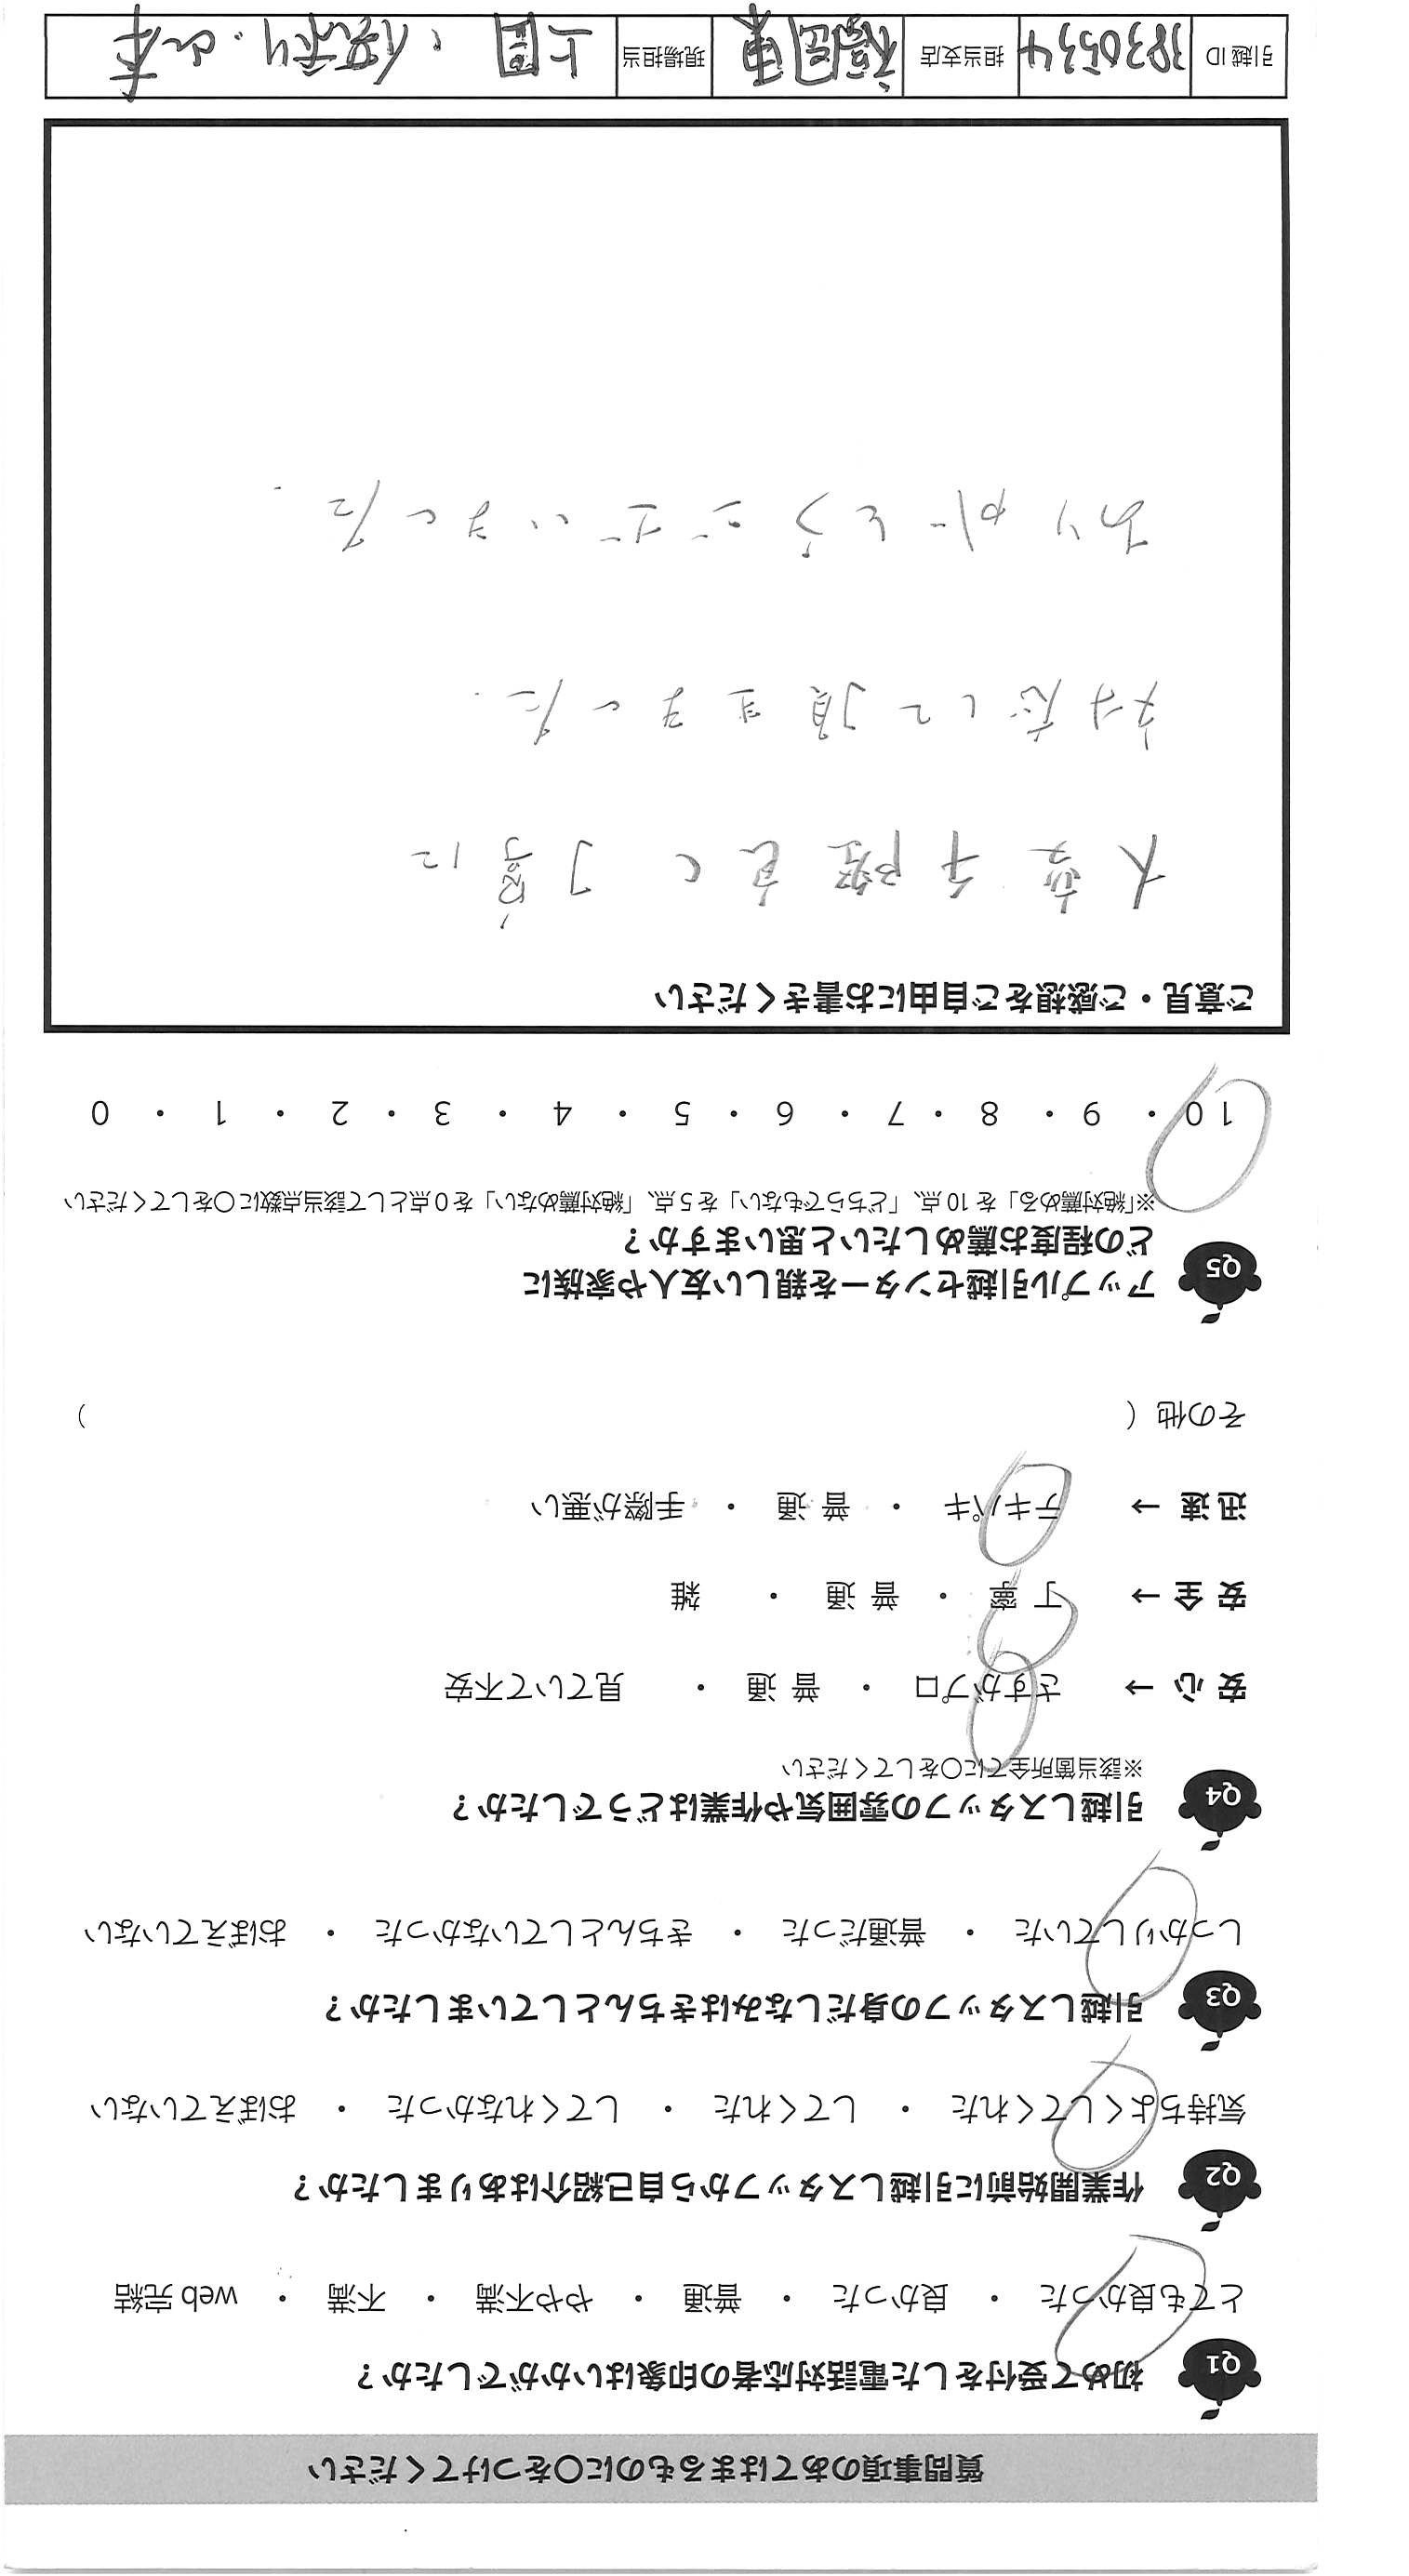 質問事項のあてはまるものに〇をつけてください
Q1 初めて受付をした電話対応者の印象はいかがでしたか？
とても良かった ・ 良かった ・ 普通 ・ やや不満 ・ 不満 ・ web 完結
Q2 作業開始前に引越しスタッフから自己紹介はありましたか？
気持ちよくしてくれた ・ してくれた ・ してくれなかった ・ おぼえていない
Q3 引越しスタッフの身だしなみはきちんとしていましたか？
しっかりしていた ・ 普通だった ・ きちんとしていなかった ・ おぼえていない
Q4 引越しスタッフの雰囲気や作業はどうでしたか？
※該当箇所全てに〇をしてください
安心 → さすがプロ ・ 普通 ・ 見ていて不安
安全 → 丁寧 ・ 普通 ・ 雑
迅速 → テキパキ ・ 普通 ・ 手際が悪い
その他（ ）
Q5 アップル引越センターを親しい友人や家族に
どの程度お薦めしたいと思いますか？
※「絶対薦める」を 10 点、「どちらでもない」を 5 点、「絶対薦めない」を 0 点として該当点数に〇をしてください
10 ・ 9 ・ 8 ・ 7 ・ 6 ・ 5 ・ 4 ・ 3 ・ 2 ・ 1 ・ 0
ご意見・ご感想をご自由にお書きください
大変手際良く丁寧に
対応して頂きました.
ありがとうございました.
引越 ID 3830534 担当支店 福岡東 現場担当 上園